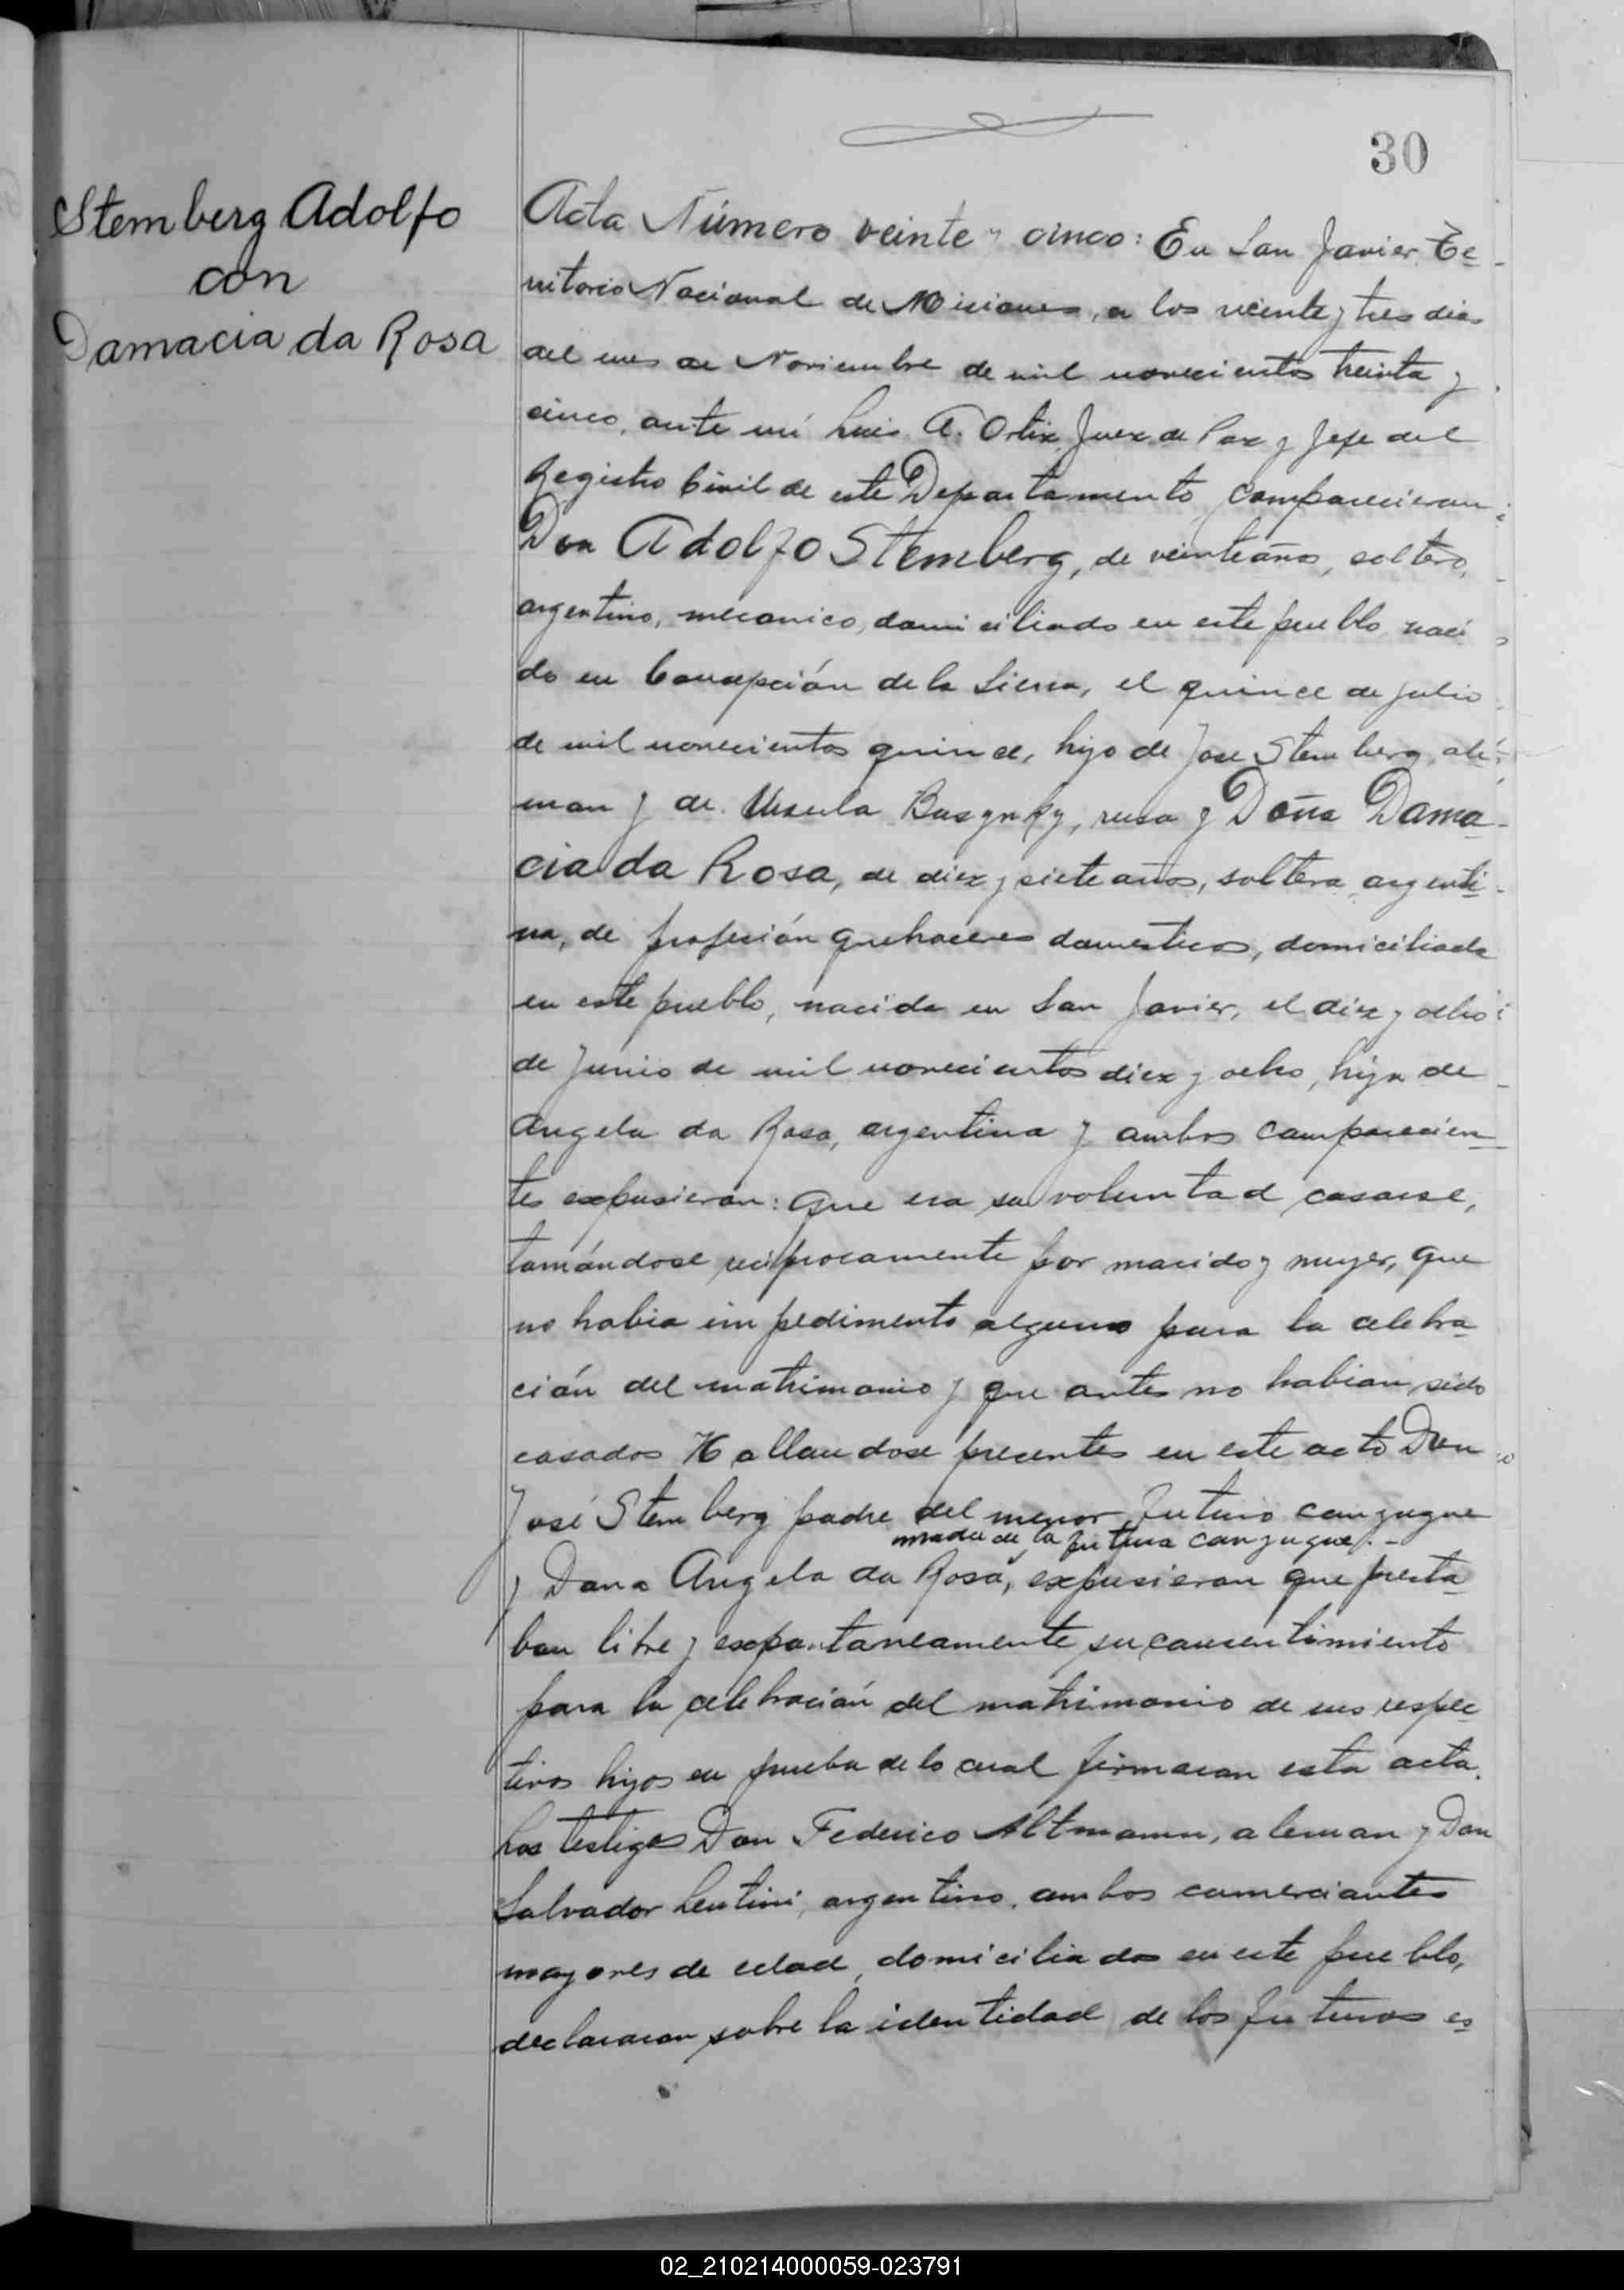 30
Stemberg Adolfo
con
Damacia da Rosa
Acta Número veinte y cinco: En San Javier Te-
rritorio Nacional de Misiones, a los veinte y tres dias
del mes de Noviembre de mil novecientos treinta y
cinco, ante mí Luis A. Ortiz Juez de Paz y Jefe del
Registro Civil de este Departamento, comparecieron
Don Adolfo Stemberg, de veinte años, soltero,
argentino, mecanico, domiciliado en este pueblo naci
do en Concepción de la Sierra, el quince de julio
de mil novecientos quince, hijo de José Stemberg, ale-
man y de Ursula , rusa y Doña Dama-
cia da Rosa, de diez y siete años, soltera, argenti-
na, de profesión quehaceres domesticos, domiciliada
en este pueblo, nacida en San Javier, el diez y ocho
de Junio de mil novecientos diez y ocho, hija de
Angela da Rosa, argentina y ambos comparecien-
tes expusieron: que era su voluntad casarse,
tomándose reciprocamente por marido y muger, que
no habia impedimento alguno para la celebra-
ción del matrimonio y que antes no habian sido
casados Hallandose presentes en este acto Don
José Stemberg padre del menor futuro conyugue
madre de la futura conyugue.-
y Dona Angela da Rosa, expusieron que presta-
ban libre y expontaneamente su consentimiento
para la celebración del matrimonio de sus respec-
tivos hijos en prueba de lo cual firmaran esta acta.
Los testigos Don Federico Altmann, aleman y Don
Salvador Lentini, argentino, ambos comerciantes
mayores de edad, domiciliados en este pueblo,
declararon sobre la identidad de los futuros es
02_210214000059-023791